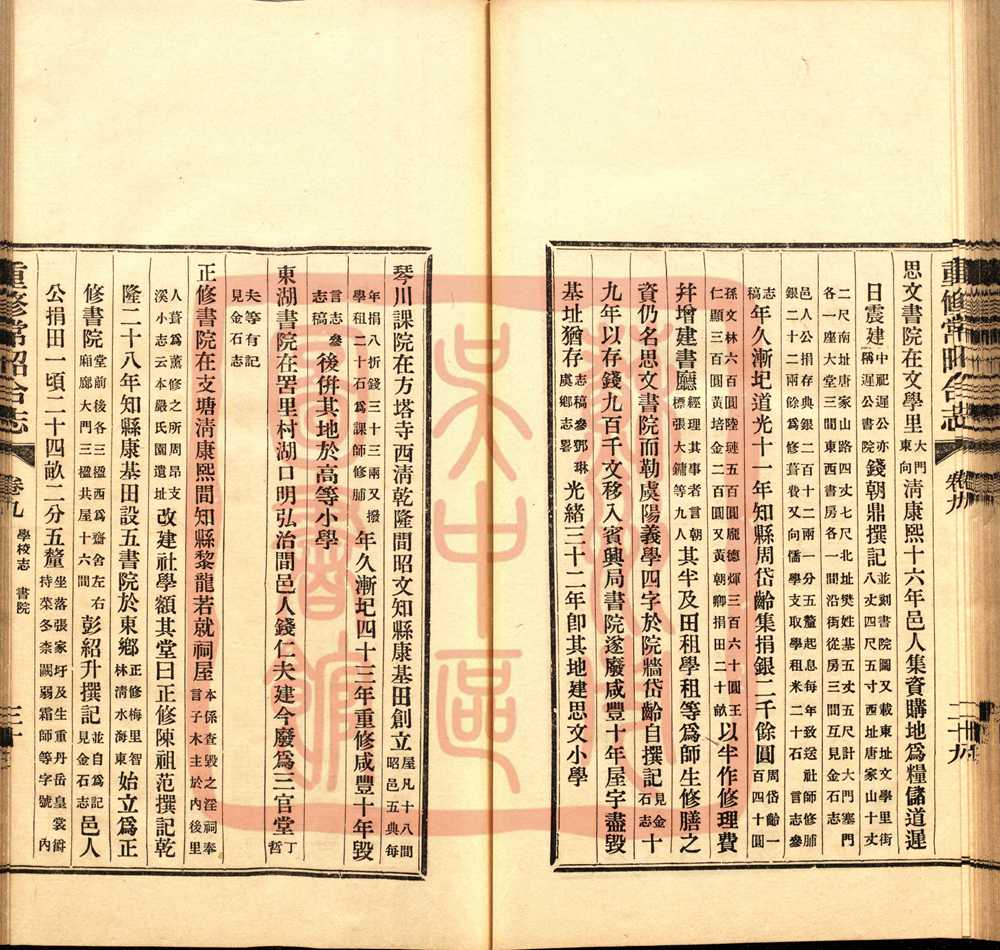 重修常昭合志 卷九 二十九
思文書院在文學里大門東向淸康熙十六年邑人集資購地爲糧儲道遲
日震建中祀遲公亦稱遲公書院錢朝鼎撰記並刻書院圖又載東址文學里街八丈四尺五寸西址唐家山十丈
二尺南址唐家山路四丈七尺北址樊姓基五丈五尺計大門塞門各一座大堂三間東西書房各一間沿街從房三間互見金石志
邑人公捐存典銀二百十二兩一分五釐起息每年致送社師修脯銀二十二兩餘爲修葺費又向儒學支取學租米二十石 言志參
志稿年久漸圮道光十一年知縣周岱齡集捐銀二千餘圓周岱齡一百四十圓
孫文林六百圓陸璉五百圓龐德煇三百六十圓王仁顯三百圓黃培金二百圓又黃朝卿捐田二十畝以半作修理費
幷增建書廳經理其事者言朝標張大鏞等九人其半及田租學租等爲師生修膳之
資仍名思文書院而勒虞陽義學四字於院牆岱齡自撰記見金石志十
九年以存錢九百千文移入賓興局書院遂廢咸豐十年屋宇盡毀
基址猶存志稿參鄧琳虞鄉志畧光緒三十二年卽其地建思文小學
琴川課院在方塔寺西淸乾隆間昭文知縣康基田創立屋凡十八間昭邑五典每
年捐八折錢三十三兩又撥學租二十石爲課師修脯年久漸圮四十三年重修咸豐十年毀
言志參志稿後倂其地於高等小學
東湖書院在罟里村湖口明弘治間邑人錢仁夫建今廢爲三官堂丁哲
夫等有記見金石志
正修書院在支塘淸康熙間知縣黎龍若就祠屋本係查毀之淫祠奉言子木主於內後里
人葺爲薰修之所周昂支溪小志云本嚴氏園遺址改建社學額其堂曰正修陳祖范撰記乾
隆二十八年知縣康基田設五書院於東鄉正修梅里智林淸水海東始立爲正
修書院堂前後各三楹西爲齋舍左右廂廊大門三楹共屋十六間彭紹升撰記並自爲記見金石志邑人
公捐田一頃二十四畝二分五釐坐落張家圩及生重丹岳皇裳爵持菜冬柰闕弱霜師等字號內
重修常昭合志 卷九 學校志 書院 三十